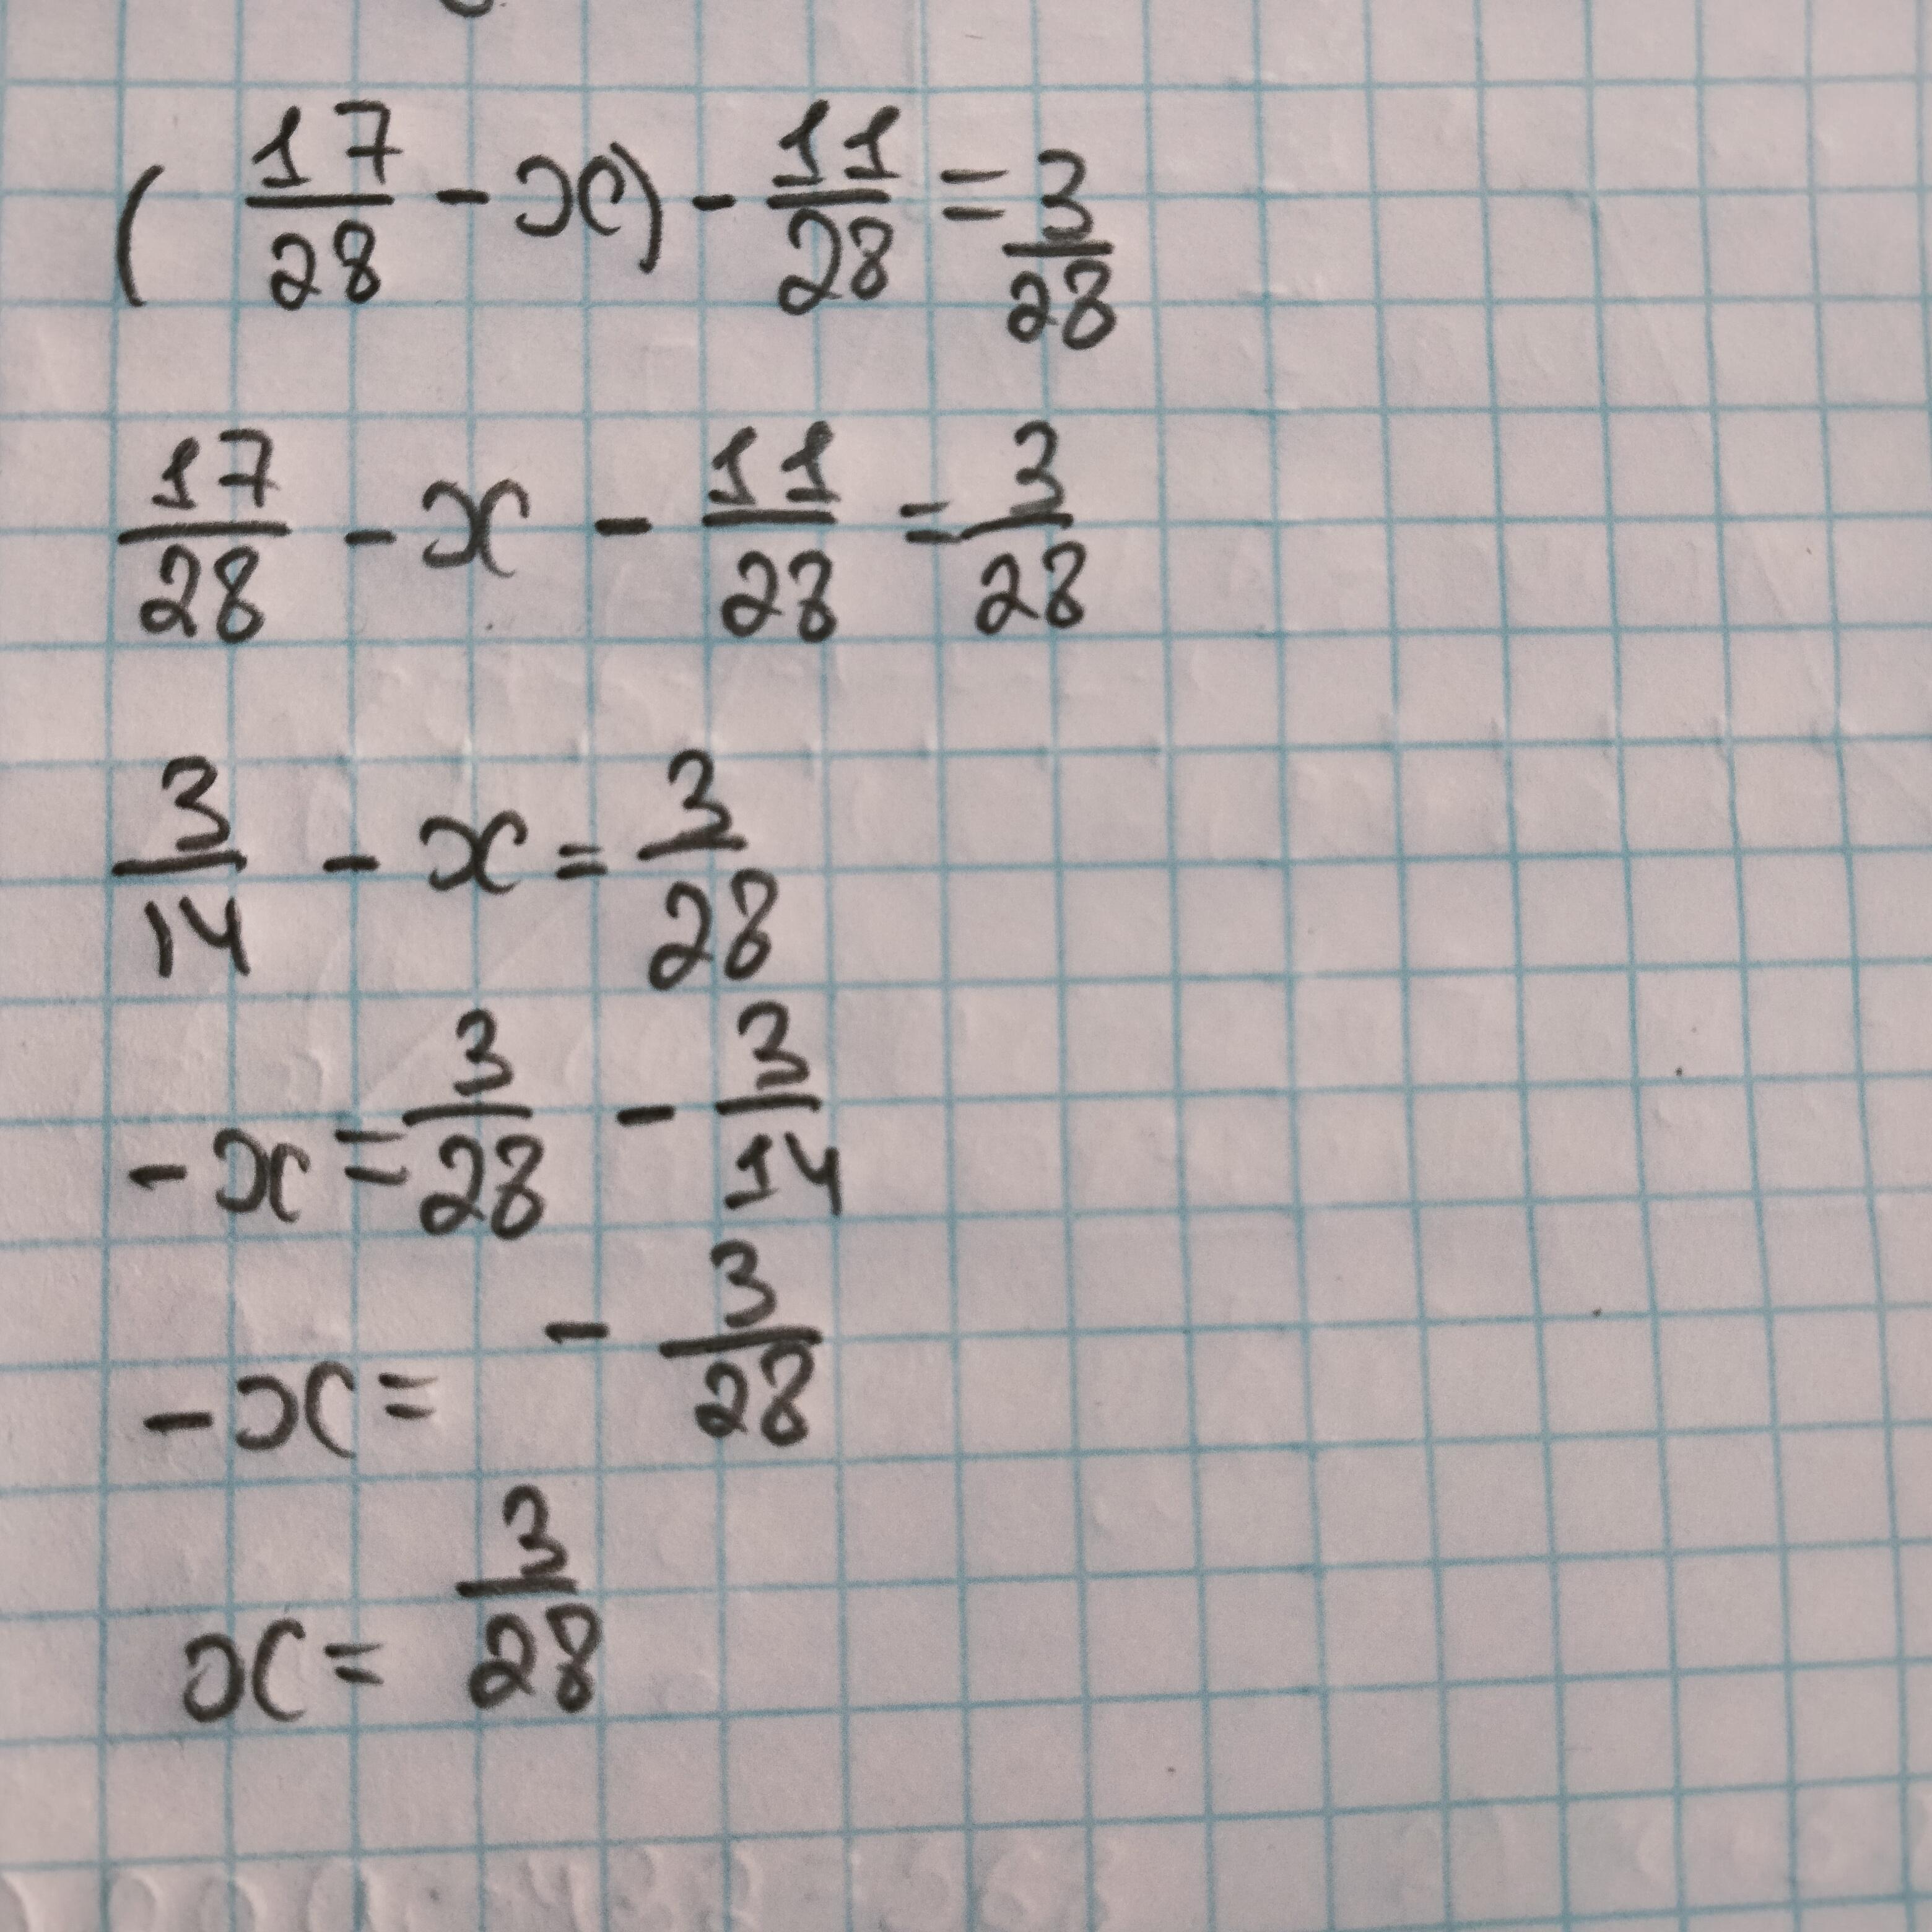 (17/28 - x) - 11/28 = 3/28
17/28 - x - 11/28 = 3/28
3/14 - x = 3/28
-x = 3/28 - 3/14
-x = - 3/28
x = 3/28